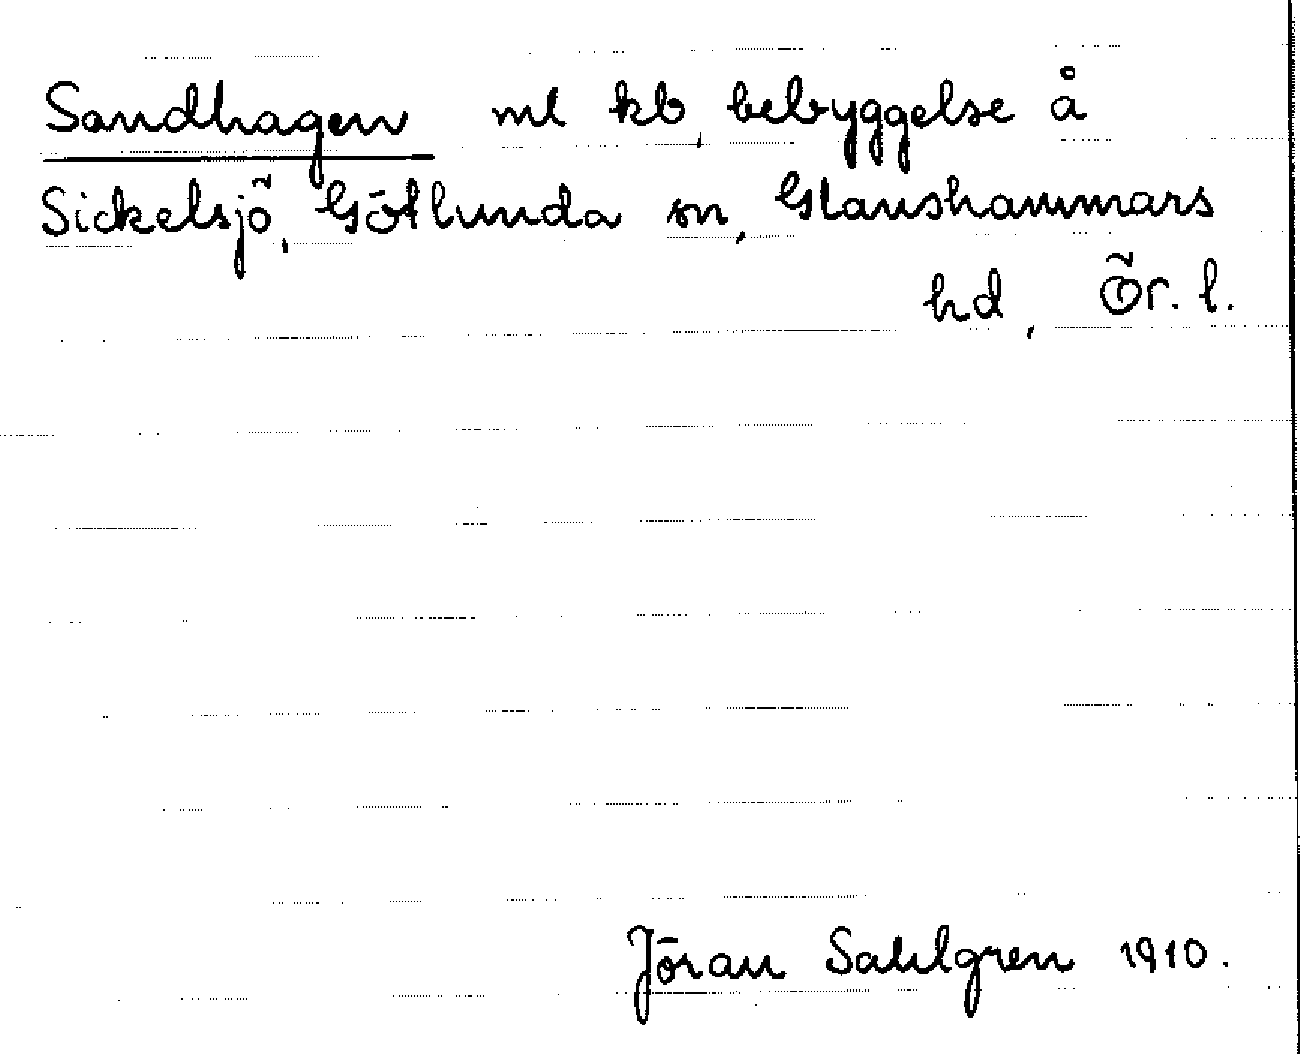 Sandhagen ml kb, bebyggelse å
Sickelsjö, Götlunda sn, Glanshammars
hd, Ör. l.
Jöran Sahlgren 1910.